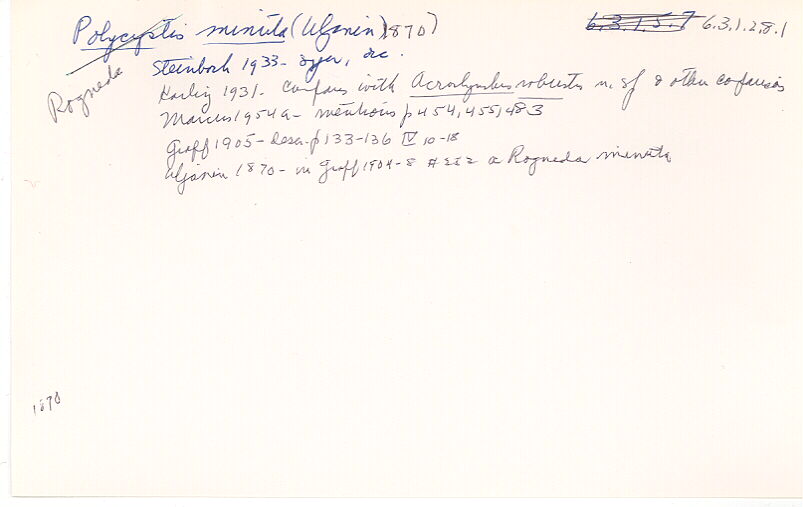 Polycystis minuta (Uljanin) 1870) 6.3.1.5.7 6.3.1.2.8.1
Rogneda
Steinbock 1933- syn, disc.
Karling 1931- compares with Acrorhynchus robustus n. sp & other comparisons
Marcus 1954a- mentions p 454, 455, 483
Graff 1905- Descr. p 133-136 IV 10-18
Uljanin 1870- in Graff 1904-8 # as Rogneda minuta
1870